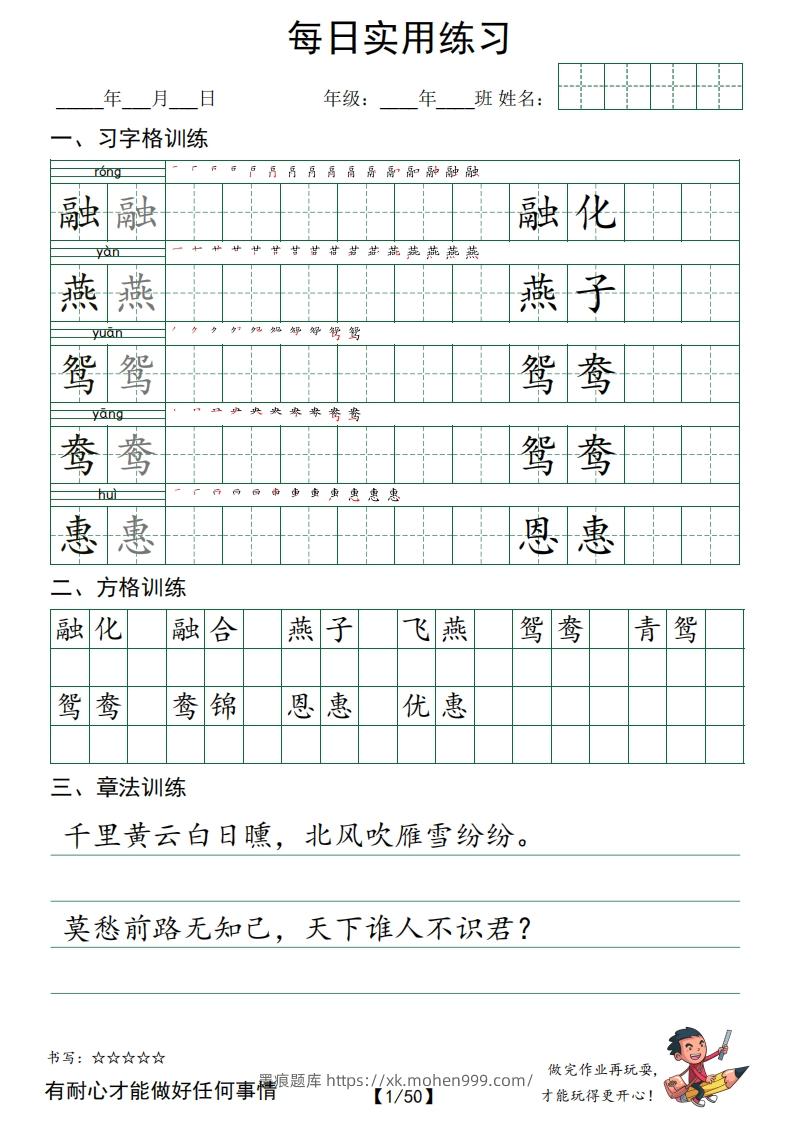 每日实用练习
_____年___月___日 年级：____年____班 姓名：
一、习字格训练
róng
融 融 融 化
yàn
燕 燕 燕 子
yuān
鸳 鸳 鸳 鸯
yāng
鸯 鸯 鸳 鸯
huì
惠 惠 恩 惠
二、方格训练
融 化 融 合 燕 子 飞 燕 鸳 鸯 青 鸳
鸳 鸯 鸯 锦 恩 惠 优 惠
三、章法训练
千里黄云白日曛，北风吹雁雪纷纷。
莫愁前路无知己，天下谁人不识君？
书写：☆☆☆☆☆
有耐心才能做好任何事情
墨痕题库 https://xk.mohen999.com/
【1/50】
做完作业再玩耍，
才能玩得更开心！